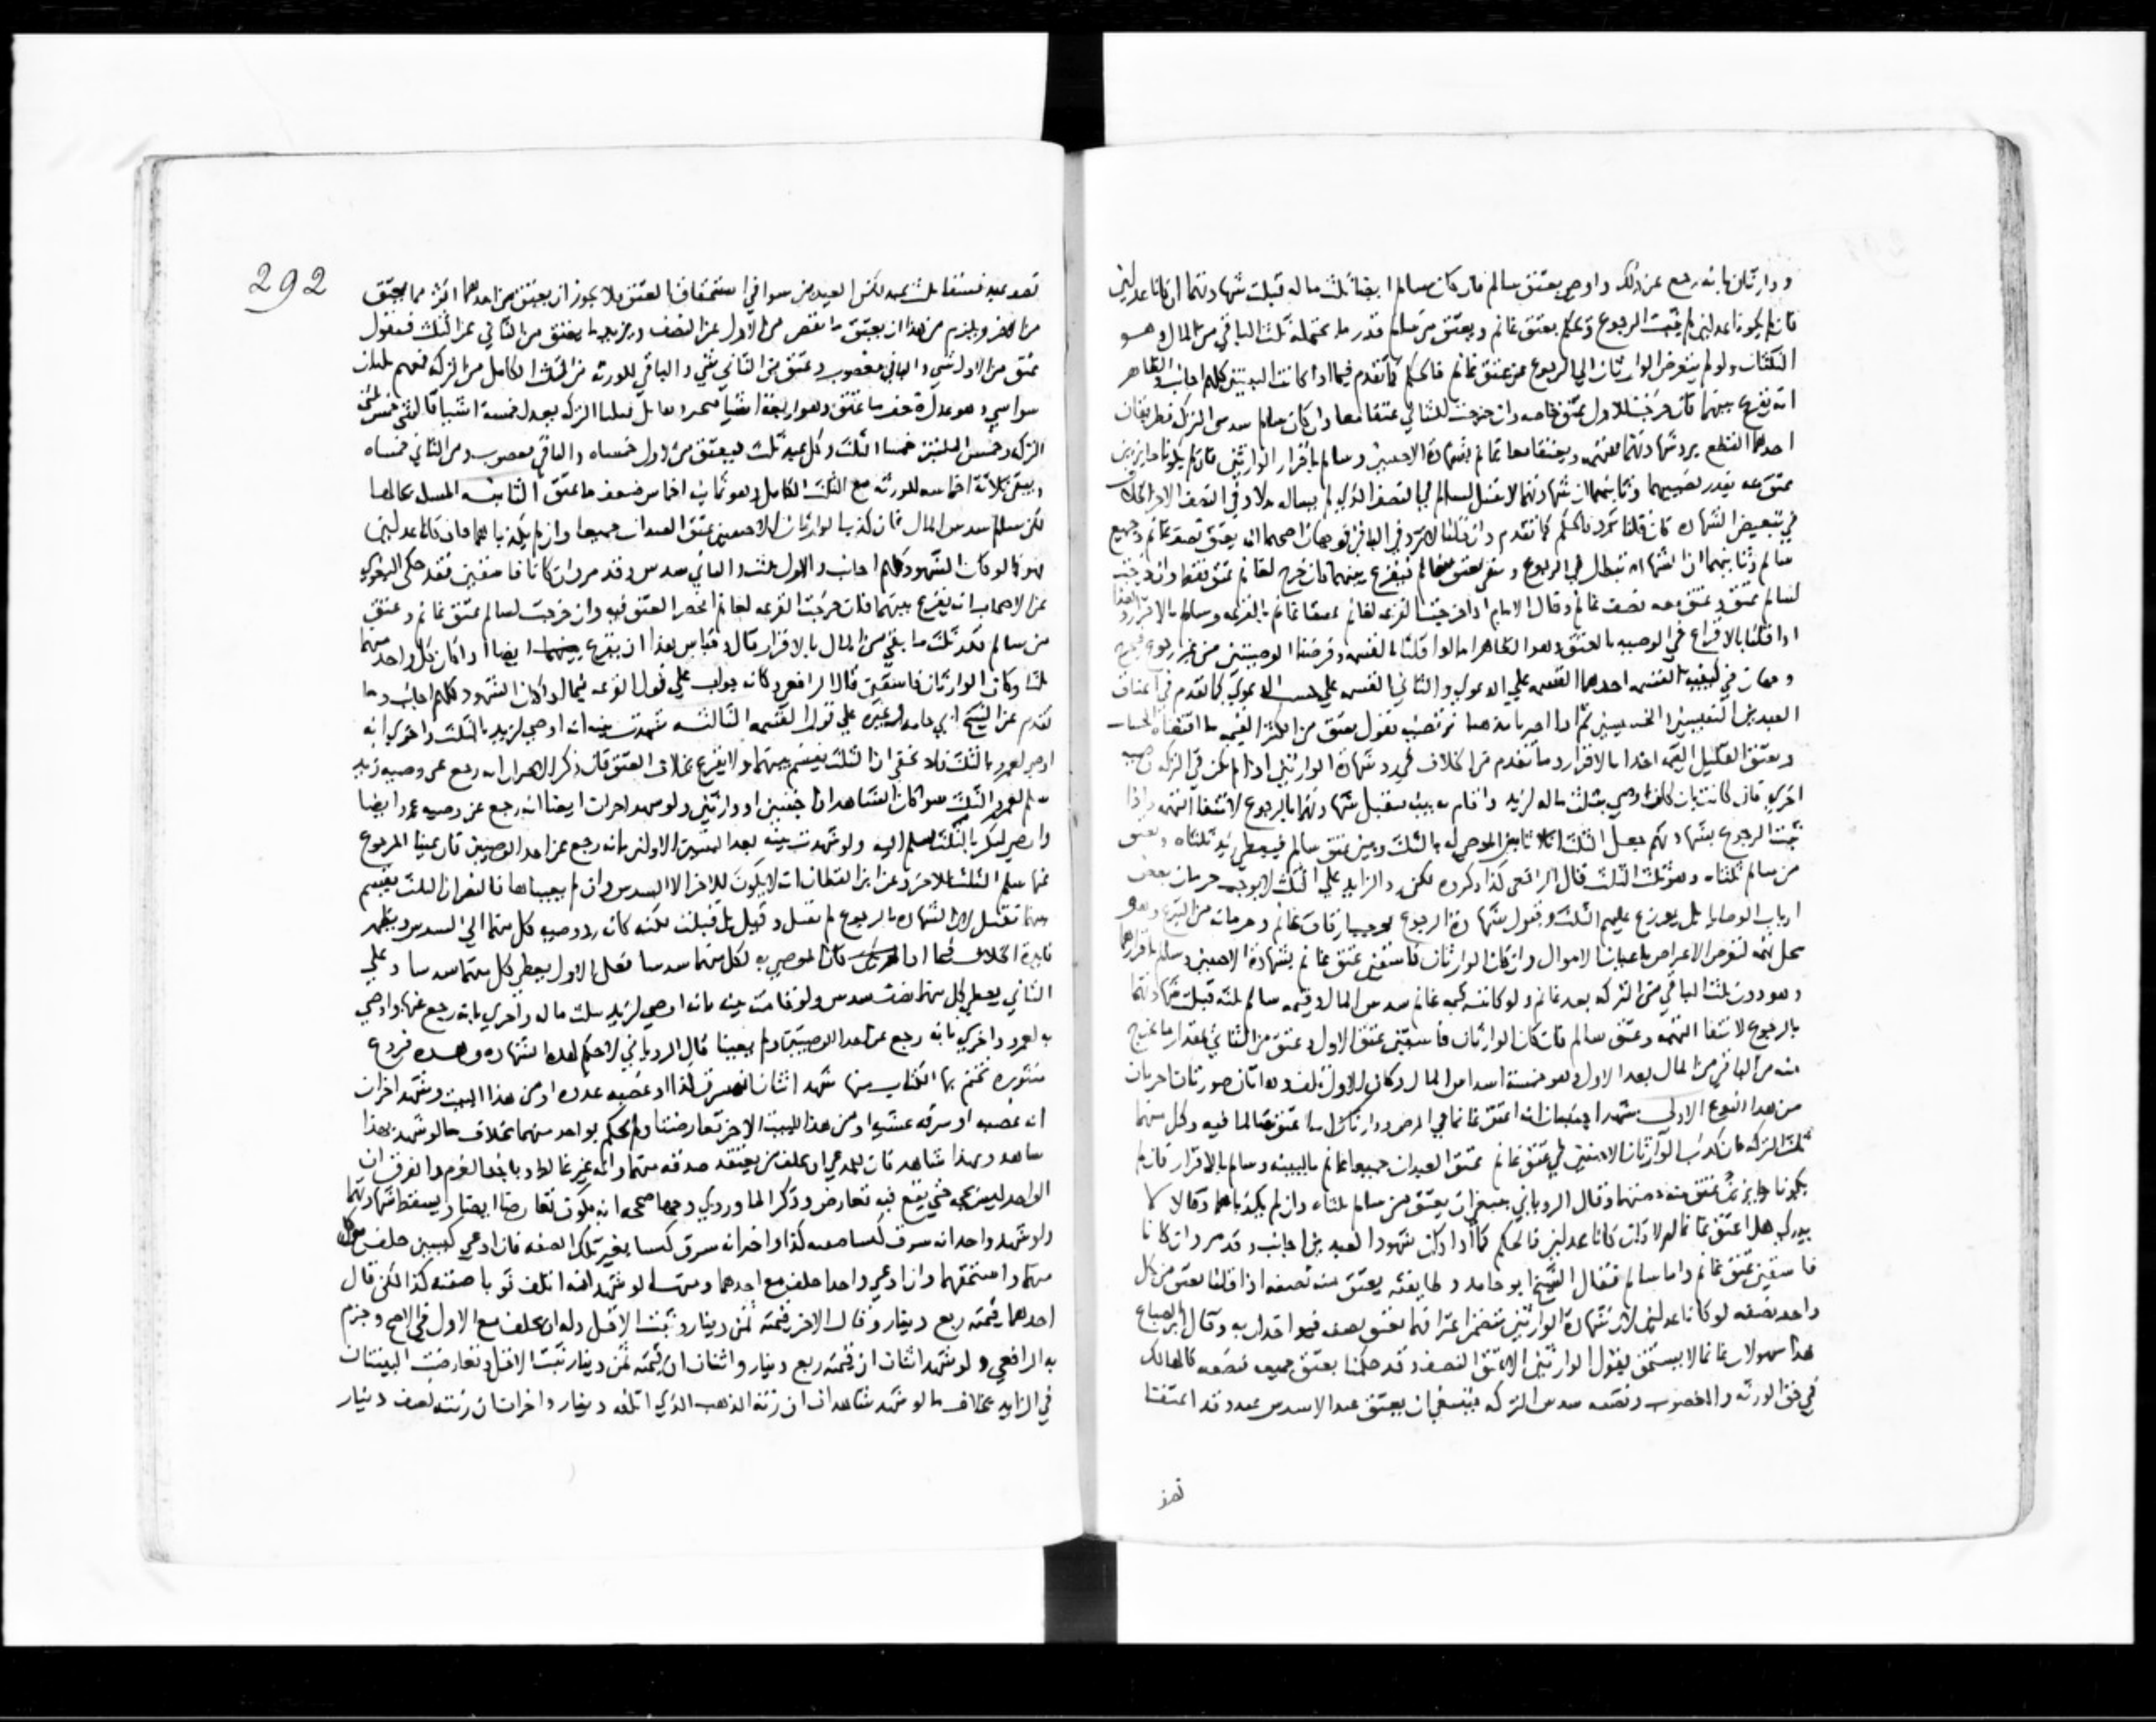 ووارثان بانه رجع عن ذلك واوصي بعتق سالم فان كان سالم ايضا ثلث ماله قبلت شهادتهما ان كانا عدلين
فان لم يكونا عدلين لم يثبت الرجوع وحكم بعتق غانم ويعتق من سالم قدر ما يحتمله ثلث الباقي من المال وهو
الثلثان ولو لم يتعرض الوارثان الي الرجوع عن عتق غانم فالحكم كما تقدم فيما اذا كانت البينتين كلهم اجانب والظاهر
انه يقرع بينهما فان خرجت للاول عتق خاصه وان خرجت للثاني عتقا معا وان كان سالم سدس التركه فطريقان
احدهما القطع برد شهادتهما للتهمه ويعتقا معا غانم بشهادة الاجنبيين وسالم باقرار الوارثين فان لم يكونا حايزين
عتق منه بقدر نصيبهما وثانيهما ان شهادتهما لا تقبل لسالم في النصف الذي لم
في تبعيض الشهاده فان قلنا ترد فالحكم كما تقدم وان قلنا لا ترد في الباقي فوجهان اصحهما انه يعتق نصف غانم وجميع
سالم وثانيهما ان الشهاده تبطل في الرجوع فيقرع بينهما فان خرج لغانم عتق فقط وان خرجت
لسالم عتق وعتق معه نصف غانم وقال الامام اذا خرجت القرعه لغانم عتقا غانم بالقرعه وسالم بالاقرار
اذا قلنا بالاقراع في الوصيه بالعتق وهو الظاهر اما لو قلنا بالقسمه وفرضنا الوصيتين من غير رجوع
وجهان في كيفية القسمه احدهما القسمه علي الدعوي والثاني القسمه علي الدعوي كما تقدم في اعتاق
العبدين
ويعتق القليل القيمه اخذا بالاقرار وما تقدم من الخلاف في رد شهادة الوارثين اذا لم يكن في التركه وصيه
اخري فان كانت بان كان اوصي بثلث ماله لزيد واقام به بينه فتقبل شهادتهما بالرجوع لانتفا التهمه واذا
ثبت الرجوع بشهادتهم جعل الثلث اثلاثا بين الموصي له بالثلث وبين عتق سالم فيعطي زيد ثلثاه ويعتق
من سالم ثلثاه وهو ثلث الثلث قال الرافعي كذا ذكروه لكن الزايد علي الثلث لا يوجب حرمان بعض
ارباب الوصايا بل يوزع عليهم الثلث ونقول شهادة الرجوع توجب ارقاق غانم وحرمانه من التبرع وهو
محل تهمه لتعرض الاغراض باعيان الاموال وان كان الوارثان فاسقين عتق غانم بشهادة الاجنبيين وسالم باقرارهما
وهو دون ثلث الباقي من التركه بعد غانم ولو كانت قيمه غانم سدس المال وقيمه سالم ثلثه قبلت شهادتهما
بالرجوع لانتفا التهمه وعتق سالم فان كان الوارثان فاسقين عتق الاول وعتق من الثاني بمقدار ما يخرج
منه من الباقي من المال بعد الاول وهو خمسة اسداس المال وكان الاول تلف وهاتان صورتان اخريان
من هذا النوع الاولي شهد اجنبيان انه اعتق غانما في المرض ووارثان انه اعتق سالما فيه وكل منهما
ثلث التركه فان كذب الوارثان الاجنبيين في عتق غانم عتق العبدان جميعا غانم بالبينه وسالم بالاقرار فان لم
يكونا حايزين عتق منه وقال الروياني ينبغي ان يعتق من سالم ثلثاه وان لم يكذباهما وقالا لا
ندري هل اعتق غانما ام لا وان كانا عدلين فالحكم كما اذا كان شهود العبدين اجانب وقد مر وان كانا
فاسقين عتق غانم واما سالم فقال الشيخ ابو حامد وطايفه يعتق منه نصفه اذا قلنا يعتق من كل
واحد نصفه لو كانا عدلين لان شهادة الوارثين تتضمن اعترافهما بعتق نصفه فيواخذان به وقال ابن الصباغ
هذا سهو لان غانما لا يستحق بقول الوارثين الا عتق النصف وقد حكمنا بعتق جميعه فنصفه كالهالك
في حق الورثه والمغصوب ونصفه سدس التركه فينبغي ان يعتق عبد الا سدس عبد وقد اعتقنا
نصف
292
نصف عبد فيبقا ثلث عبد لكن العبدين سوا في استحقاق العتق فلا يجوز ان يعتق من احدهما اكثر مما يعتق
من الاخر ويلزم من هذا ان يعتق ما نقص من الاول عن النصف ويزيد ما يعتق من الثاني عن الثلث فنقول
عتق من الاول شي والباقي مغصوب وعتق من الثاني شي والباقي للورثه مع الثلث الكامل من التركه فمعهم ثلثان
سوا شي وهو عدل ضعف ما عتق وهو اربعة اشيا فيجبر ويقابل فثلثا التركه يعدل خمسة اشيا فالشي خمس ثلثي
التركه وخمس الثلثين خمسا الثلث وكل عبد ثلث فيعتق من الاول خمساه والباقي مغصوب ومن الثاني خمساه
ويبقي ثلاثة اخماسه للورثه مع الثلث الكامل وهو ثمانيه اخماس ضعف ما عتق الثانيه المسله بحالها
لكن سالم سدس المال فان كذب الوارثان الاجنبيين عتق العبدان جميعا وان لم يكذباهما فان كانا عدلين
فهو كما لو كان الشهود كلهم اجانب والاول ثلث والثاني سدس وقد مر وان كانا فاسقين فقد حكي البغوي
عن الاصحاب انه يقرع بينهما فان خرجت القرعه لغانم انحصر العتق فيه وان خرجت لسالم عتق غانم وعتق
من سالم بقدر ثلث ما بقي من المال بالاقرار قال وقياس هذا ان يقرع بينهما ايضا اذا كان كل واحد منهما
ثلثا وكان الوارثان فاسقين قال الرافعي وكانه جواب علي قول القرعه فيما اذا كان الشهود كلهم اجانب وما
تقدم عن الشيخ ابي حامد وغيره علي قول القسمه الثالثه شهدت بينه انه اوصي لزيد بالثلث واخري انه
اوصي لعمرو بالثلث فلا يخفي ان الثلث يقسم بينهما ولا يقرع بخلاف العتق فان ذكر الاخران انه رجع عن وصيه زيد
سلم لعمرو الثلث سوا كان الشاهدان اجنبيين او وارثين ولو شهد اخران ايضا انه رجع عن وصيه عمرو ايضا
واوصي لبكر بالثلث سلم اليه ولو شهدت بينه بعد البينتين الاولين بانه رجع عن احد الوصيتين فان عينا المرجوع
عنها سلم الثلث للاخر وعن ابن القطان انه لا يكون للاخر الا السدس وان لم يعيناها فالنص ان الثلث يقسم
بينهما لان الشهاده بالرجوع لم تقبل وقيل بل قبلت لكنه كانه رد وصيه كل منهما الي السدس ويظهر
فايدة الخلاف فيما اذا كان الموصي به لكل منهما سدسا فعلي الاول يعطي كل منهما سدسا وعلي
الثاني يعطي كل منهما نصف سدس ولو قامت بينه بانه اوصي لزيد بثلث ماله واخري بانه رجع عنها واوصي
به لعمرو واخري بانه رجع عن احد الوصيتين ولم يعينا قال الروياني لا حكم لهذه الشهاده وهذه فروع
منثوره نختم بها الكتاب منها شهد اثنان انه سرق كذا او غصبه غدوه او من هذا البيت وشهد اخران
انه غصبه او سرقه عشيه او من هذا البيت الاخر تعارضتا ولم يحكم بواحد منهما بخلاف ما لو شهد بهذا
شاهد وبهذا شاهد فان للمدعي ان يحلف مع من يعتقد صدقه منهما وانه غير غالط وياخذ الغرم والفرق ان
الواحد ليس بحجه حتي يقع فيه تعارض وذكر الماوردي وجها صححه انه يكون تعارضا ايضا ويسقط شهادتهما
ولو شهد واحد انه سرق كيسا صفته كذا واخر انه سرق كيسا بغير تلك الصفه فان ادعي كيسين حلف مع كل
منهما واستحقهما وان ادعي واحدا حلف مع احدهما ومنها لو شهد انه اتلف ثوبا صفته كذا لكن قال
احدهما قيمته ربع دينار وقال الاخر قيمته ثمن دينار ثبت الاقل وله ان يحلف مع الاول في الاصح وجزم
به الرافعي ولو شهد اثنان ان قيمته ربع دينار واثنان ان قيمته ثمن دينار ثبت الاقل وتعارضت البينتان
في الزايد بخلاف ما لو شهد شاهدان ان زنة الذهب الذي اتلفه دينار واخران ان زنته نصف دينار